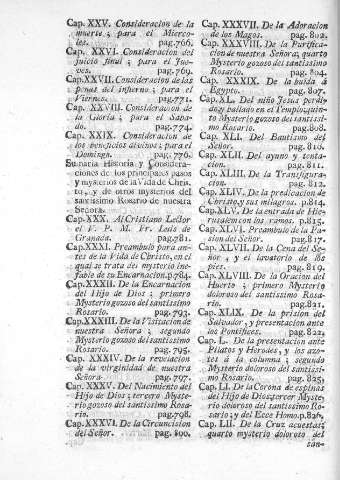 Cap. XXV. Consideracion de la
muerte; para el Miercoles.
les. pag.766.
Cap. XXVI. Consideracion del
juicio final; para el Jueves.
ves. pag.769.
Cap.XXVII. Consideracion de las
penas del infierno; para el
Viernes. pag.771.
Cap. XXVIII. Consideracion de
la Gloria; para el Sabado.
do. pag.774.
Cap. XXIX. Consideracion de
los beneficios divinos; para el
Domingo. pag. 776.
Sumaria Historia, y Consideraciones
ciones de los principales pasos
y mysterios de la Vida de Christo,
to, y de otros mysterios del
santissimo Rosario de nuestra
Señora.
Cap. XXX. Al Cristiano Lector
el V. P. M. Fr. Luis de
Granada. pag.781.
Cap.XXXI. Preambulo para antes
tes de la Vida de Christo, en el
qual se trata del mysterio inefable
fable de su Encarnacion. p.784.
Cap. XXXII. De la Encarnacion
del Hijo de Dios; primero
Mysterio gozoso del santissimo
Rosario. pag. 793.
Cap.XXXIII. De la Visitacion de
nuestra Señora; segundo
Mysterio gozoso del santissimo
Rosario. pag. 795.
Cap. XXXIV. De la revelacion
de la virginidad de nuestra
Señora. pag.797.
Cap. XXXV. Del Nacimiento del
Hijo de Dios; tercero Mysterio
rio gozoso del santissimo Rosario.
rio. pag.798.
Cap.XXXVI. De la Circuncision
del Señor. pag. 800.
Cap. XXXVII. De la Adoracion
de los Magos. pag. 802.
Cap. XXXVIII. De la Purificacion
cion de nuestra Señora; quarto
Mysterio gozoso del santissimo
Rosario. pag. 804.
Cap. XXXIX. De la huida á
Egypto. pag. 807.
Cap. XL. Del niño Jesus perdido,
do, y hallado en el Templo; quinto
to Mysterio gozoso del santissimo
mo Rosario. pag.808.
Cap. XLI. Del Bautismo del
Señor. pag. 810.
Cap. XLII. Del ayuno y tentacion.
cion. pag. 811.
Cap. XLIII. De la Transfiguracion.
racion. pag. 812.
Cap. XLIV. De la predicacion de
Christo, y sus milagros. p.814.
Cap.XLV. De la entrada de Hierusalem
rusalem con los ramos. p.815.
Cap. XLVI. Preambulo de la Pasion
sion del Señor. pag.817.
Cap. XLVII. De la Cena del Señor
ñor, y el lavatorio de los
pies. pag. 819.
Cap. XLVIII. De la Oracion del
Huerto; primero Mysterio
doloroso del santissimo Rosario.
rio. pag.821.
Cap. XLIX. De la prision del
Salvador, y presentacion ante
los Pontifices. pag. 822.
Cap. L. De la presentacion ante
Pilatos y Herodes, y los azotes
tes á la columna; segundo
Mysterio doloroso del santissimo
mo Rosario. pag. 825.
Cap. LI. De la Corona de espinas
del Hijo de Dios; tercer Mysterio
rio doloroso del santissimo Rosario;
sario; y del Ecce Homo. p.826.
Cap. LII. De la Cruz acuestas;
quarto mysterio doloroso del
san-